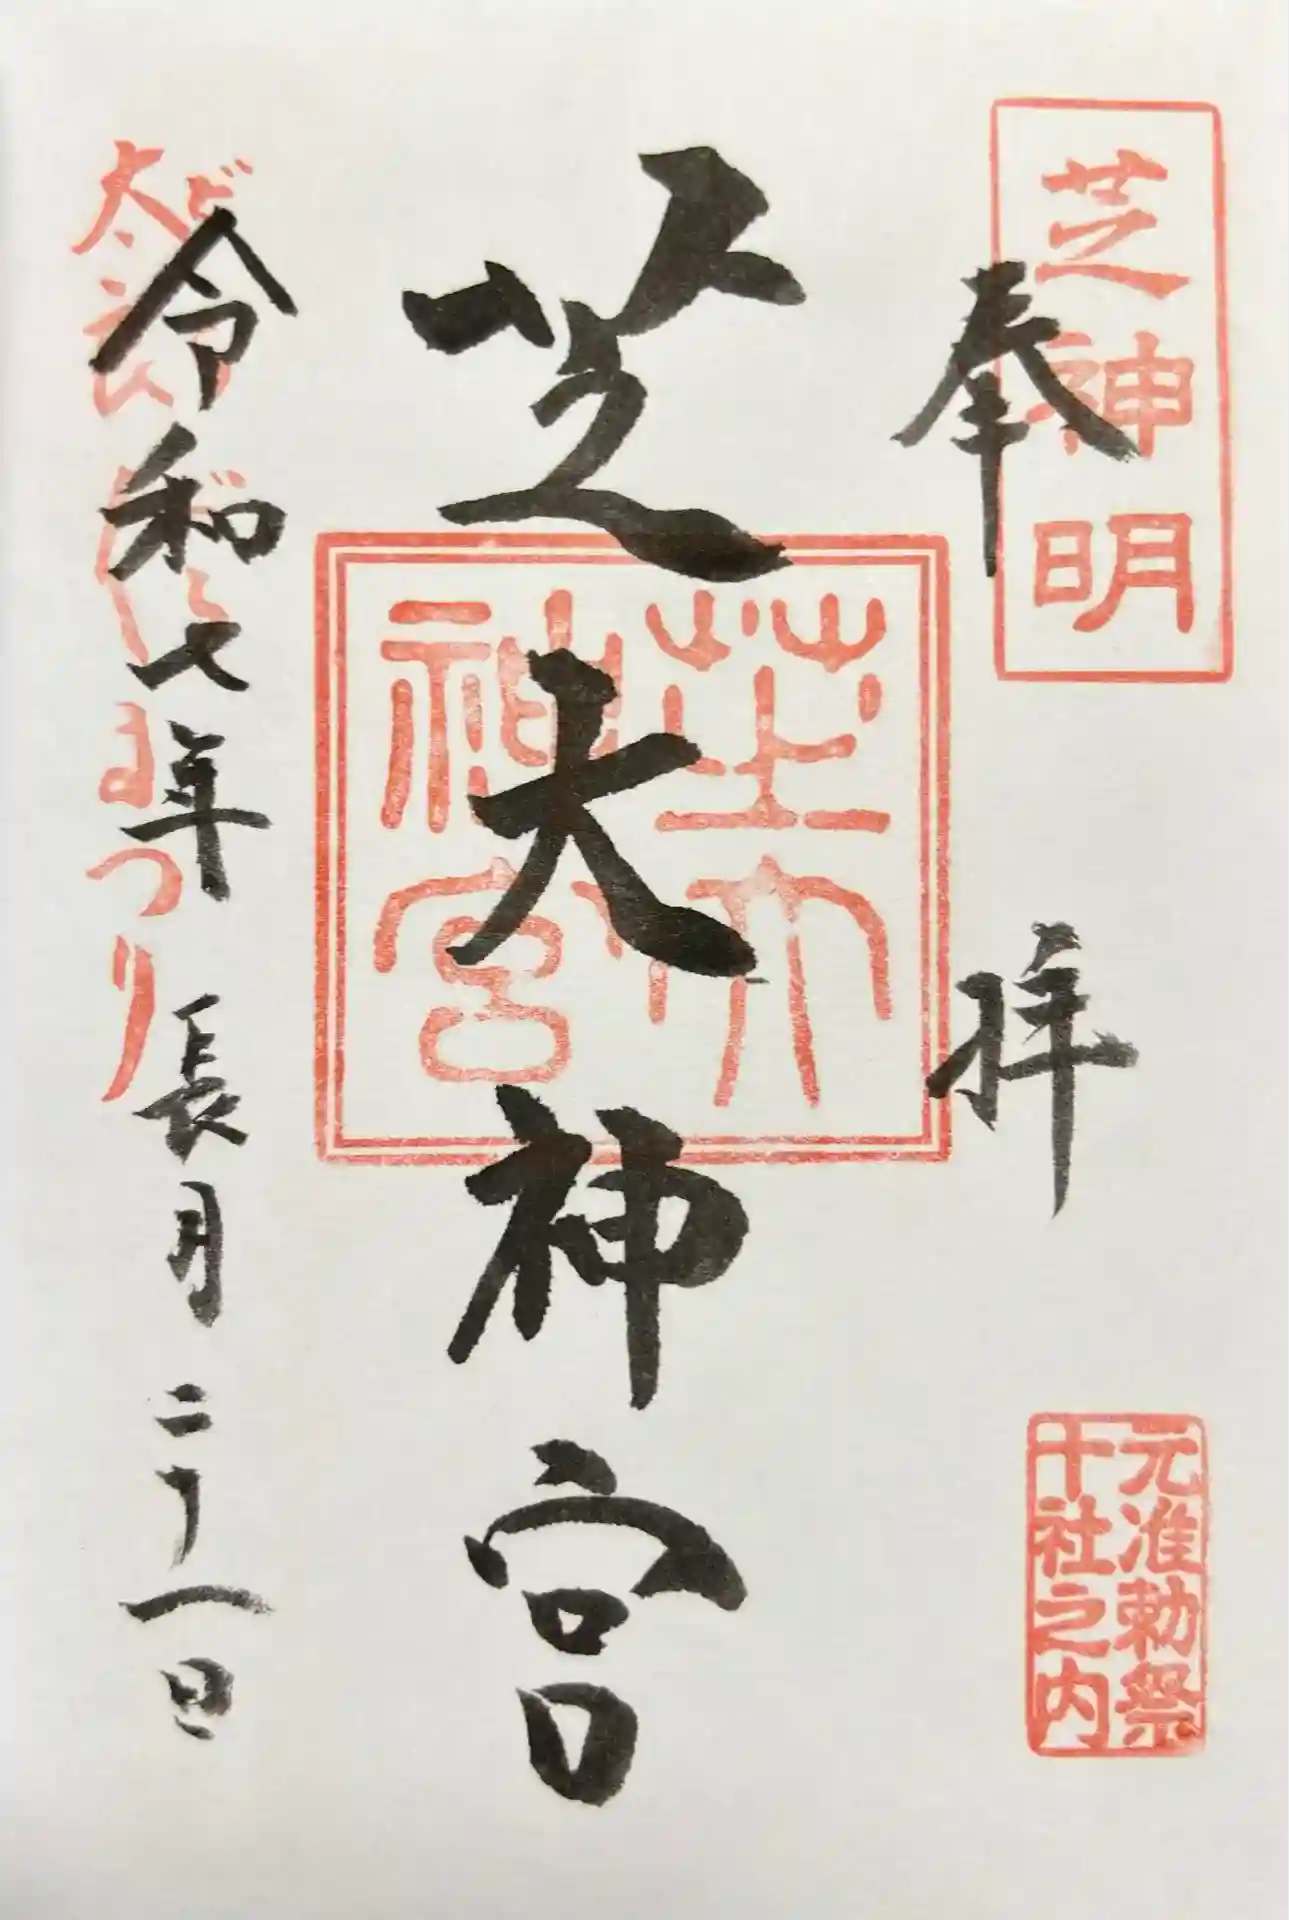 芝神明
奉拝
元准勅祭
十社之内
芝大神宮
芝大
神宮
令和七年長月二十一日
まつり